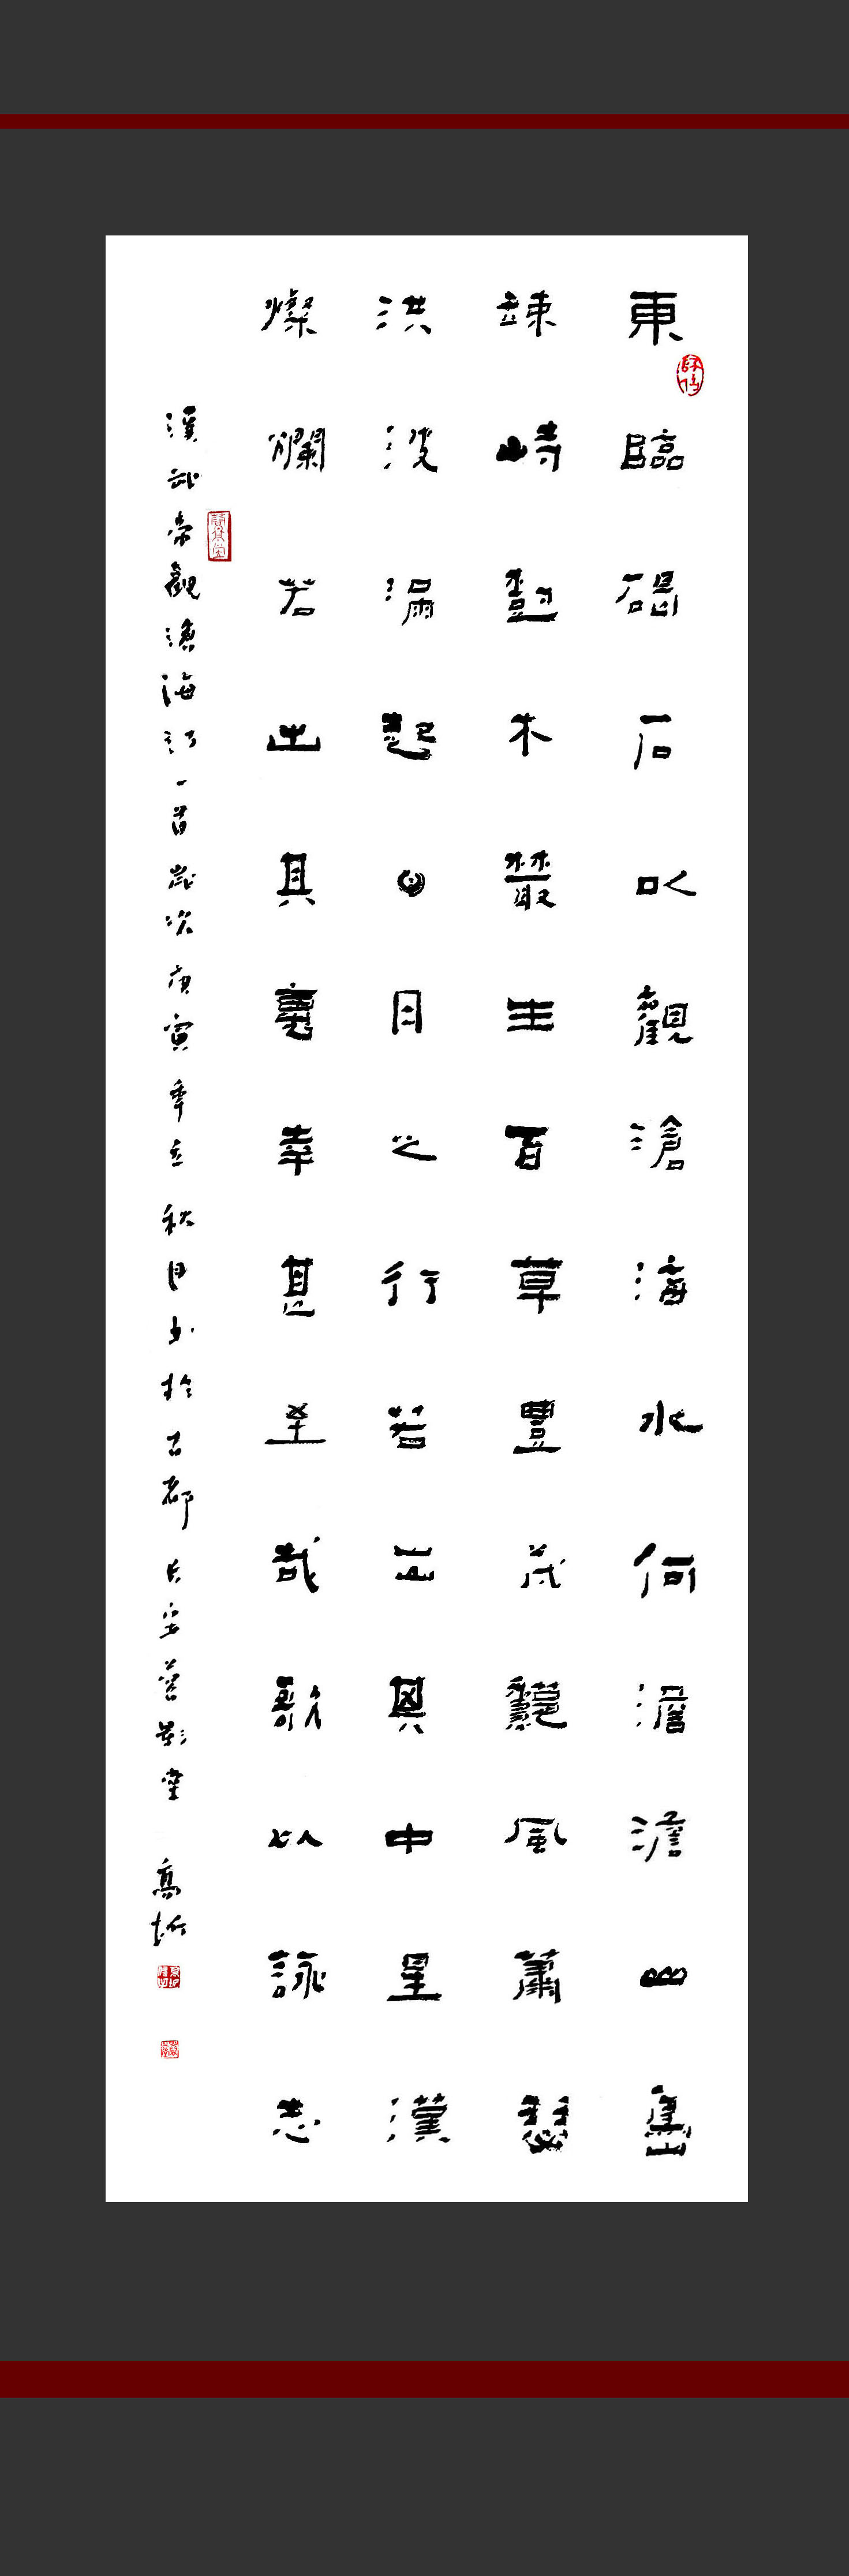 東臨碣石以觀滄海水何澹澹山島
竦峙樹木叢生百草豐茂龝風蕭瑟
洪波涌起日月之行若出其中星漢
燦爛若出其裏幸甚至哉歌以詠志
漢武帝觀滄海詩一首歲次庚寅年立秋月書於古都長安影堂高